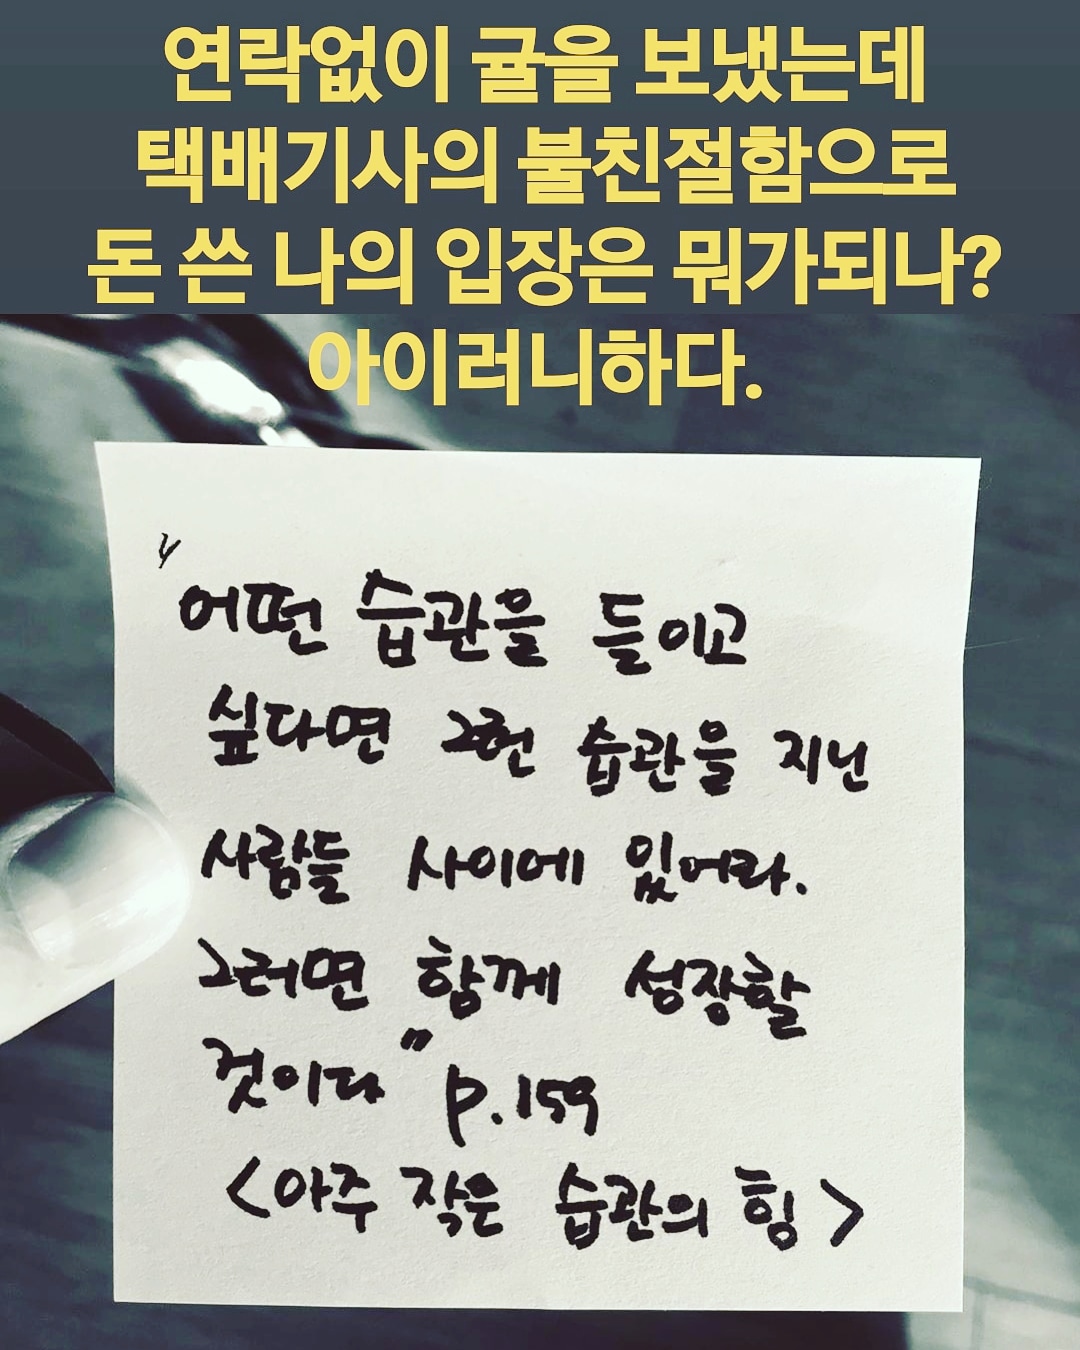 연락없이 귤을 보냈는데
택배기사의 불친절함으로
돈 쓴 나의 입장은 뭐가되나?
아이러니하다.
"어떤 습관을 들이고
싶다면 그런 습관을 지닌
사람들 사이에 있어라.
그러면 함께 성장할
것이다" p.159
<아주 작은 습관의 힘>